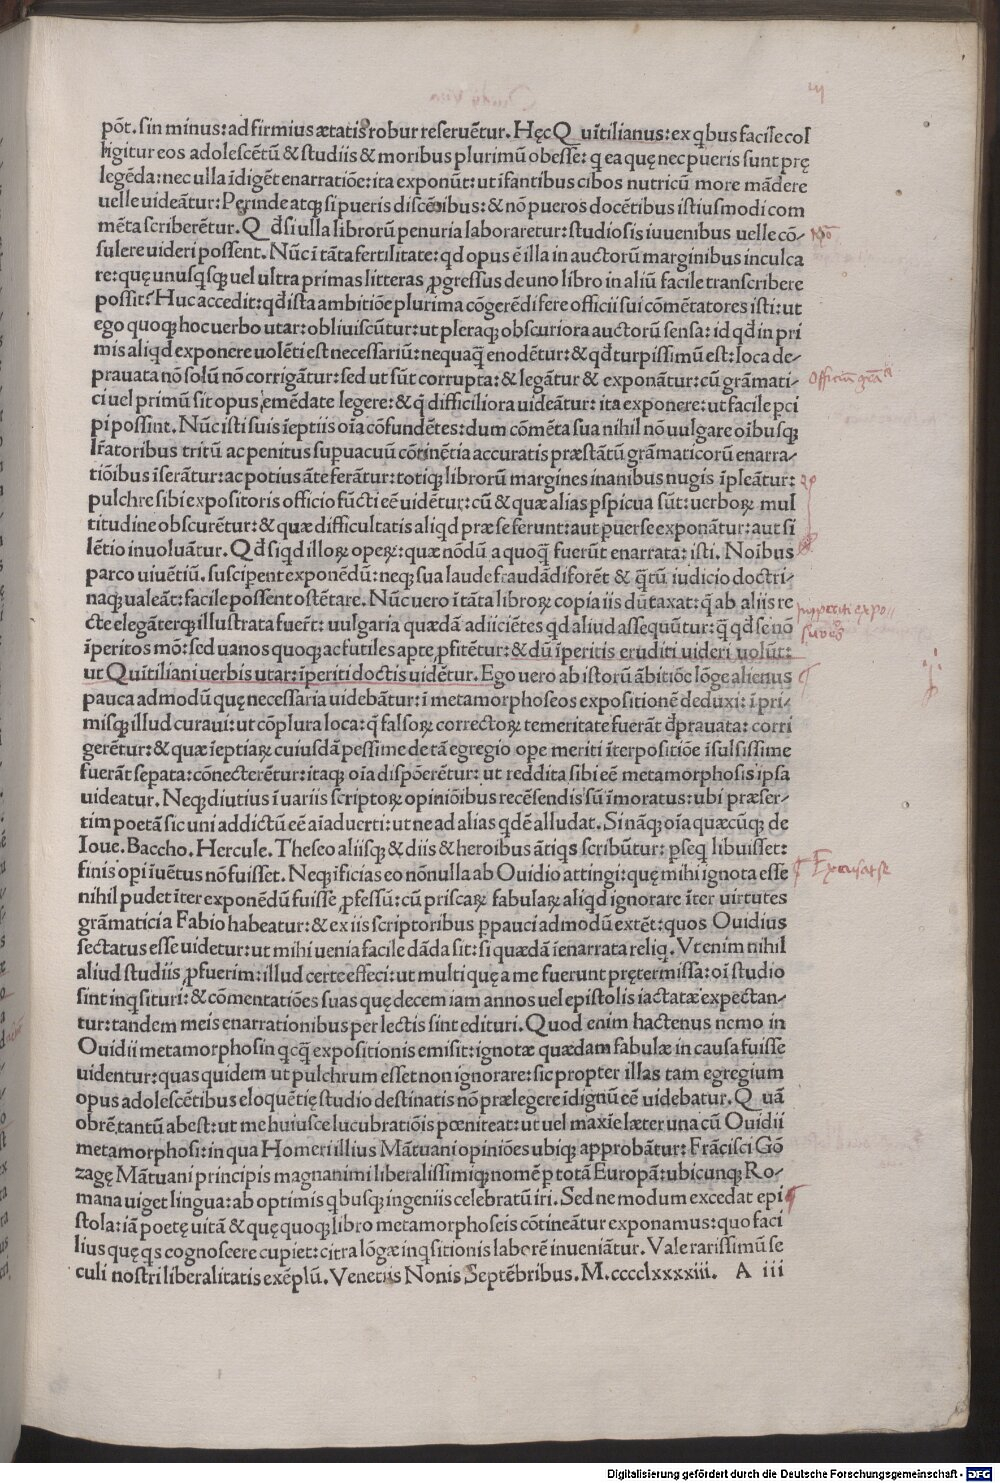 põt. sin minus: ad firmius ætatis robur reseruẽtur. Hęc Q uĩtilianus: ex q̃bus facile col
ligitur eos adolescẽtũ & studiis & moribus plurimũ obesse: q ea quę nec pueris sunt prę
legẽda: nec ulla ĩdigẽt enarratiõe: ita exponũt: ut ĩfantibus cibos nutricũ more mãdere
uelle uideãtur: Perinde atqꝫ si pueris discẽtibus: & nõ pueros docẽtibus istiusmodi com
mẽta scriberẽtur. Q đ si ulla librorũ penuria laboraretur: studiosis iuuenibus uelle cõ⸗
sulere uideri possent. Nũc ĩ tãta fertilitate: qd opus ẽ illa in auctorũ marginibus inculca
re: quę unusqsqꝫ uel ultra primas litteras ꝓgressus de uno libro in aliũ facile transcribere
possit? Huc accedit: qđ ista ambitiõe plurima cõgerẽdi fere officii sui cõmẽtatores isti: ut
ego quoqꝫ hoc uerbo utar: obliuiscũtur: ut pleraqꝫ obscuriora auctorũ sensa: id qđ in pri
mis aliqd exponere uolẽti est necessariũ: nequaq̃ enodẽtur: & qđ turpissimũ est: loca de⸗
prauata nõ solũ nõ corrigãtur: sed ut sũt corrupta: & legãtur & exponãtur: cũ grãmati⸗
ci uel primũ sit opus emẽdate legere: & q̃ difficiliora uideãtur: ita exponere: ut facile ꝑci
pi possint. Nũc isti suis ĩeptiis oĩa cõfundẽtes: dum cõmẽta sua nihil nõ uulgare oĩbusqꝫ
lr̃atoribus tritũ: ac penitus suꝑuacuũ cõtinẽtia accuratis præstãtũ grãmaticorũ enarra⸗
tiõibus ĩserãtur: ac potius ãte ferãtur: totiqꝫ librorũ margines inanibus nugis ĩpleãtur:
pulchre sibi expositoris officio fũcti eẽ uidẽtur: cũ & quæ alias ꝑspicua sũt: uerboꝝ mul
titudine obscurẽtur: & quæ difficultatis aliqd præ se ferunt: aut ꝑuerse exponãtur: aut si
lẽtio inuoluãtur. Q đ si qd illoꝝ opeꝝ: quæ nõdũ a quoq̃ fuerũt enarrata: isti. Noĩbus
parco uiuẽtiũ. susciperent exponẽdũ: neqꝫ sua laude fraudãdi forẽt & q̃tũ iudicio doctri⸗
naqꝫ ualeãt: facile possent ostẽtare. Nũc uero ĩ tãta libroꝝ copia iis dũtaxat: q̃ ab aliis re
cte elegãterqꝫ illustrata fuer̃t: uulgaria quædã adiiciẽtes qd aliud assequũtur: q̃ qđ se nõ
ĩperitos mõ: sed uanos quoqꝫ ac futiles aperte ꝓfitẽtur: & dũ ĩperitis eruditi uideri uolũt:
ut Quĩtiliani uerbis utar: ĩperiti doctis uidẽtur. Ego uero ab istorũ ãbitiõe lõge alienus
pauca admodũ quę necessaria uidebãtur: ĩ metamorphoseos expositionẽ deduxi: ĩ pri⸗
misqꝫ illud curaui: ut cõplura loca: q̃ falsoꝝ correctoꝝ temeritate fuerãt đprauata: corri
gerẽtur: & quæ ĩeptiaꝝ cuiusdã pessime de tã egregio ope meriti ĩterpositiõe ĩsulsissime
fuerãt seꝑata: cõnecterẽtur: itaqꝫ oĩa dispõerẽtur: ut reddita sibi eẽ metamorphosis ipsa
uideatur. Neqꝫ diutius ĩ uariis scriptoꝝ opiniõibus recẽsendis sũ ĩmoratus: ubi præser⸗
tim poetã sic uni addictũ eẽ aĩaduerti: ut ne ad alias qdẽ alludat. Si nãqꝫ oĩa quæcũqꝫ de
Ioue. Baccho. Hercule. Theseo aliisqꝫ & diis & heroibus ãtiqs scribũtur: ꝑseq libuisset:
finis opi ĩuẽtus nõ fuisset. Neqꝫ ĩficias eo nõnulla ab Ouidio attingi: quę mihi ignota esse
nihil pudet ĩter exponẽdũ fuisse ꝓfessũ: cũ priscaꝝ fabulaꝝ aliqd ignorare ĩter uirtutes
grãmatici a Fabio habeatur: & ex iis scriptoribus ꝑpauci admodũ extẽt: quos Ouidius
sectatus esse uidetur: ut mihi uenia facile dãda sit: si quædã ĩenarrata reliq. Vt enim nihil
aliud studiis ꝓfuerim: illud certe effeci: ut multi quę a me fuerunt prętermissa: oĩ studio
sint inqsituri: & cõmentatiões suas quę decem iam annos uel epistolis iactatæ expectan⸗
tur: tandem meis enarrationibus perlectis sint edituri. Quod enim hactenus nemo in
Ouidii metamorphosin qcq̃ expositionis emisit: ignotæ quædam fabulæ in causa fuisse
uidentur: quas quidem ut pulchrum esset non ignorare: sic propter illas tam egregium
opus adolescẽtibus eloquẽtię studio destinatis nõ prælegere ĩdignũ eẽ uidebatur. Q uã
obrẽ tantũ abest: ut me huiusce lucubratiõis pœniteat: ut uel maxĩe læter una cũ Ouidii
metamorphosi: in qua Homeri illius Mãtuani opiniões ubiqꝫ approbãtur: Frãcisci Gõ
zagę Mãtuani principis magnanimi liberalissimiqꝫ nomẽ ꝑ totã Europã: ubicunqꝫ Ro⸗
mana uiget lingua: ab optimis qbusqꝫ ingeniis celebratũ iri. Sed ne modum excedat epi
stola: iã poetę uitã & quę quoqꝫ libro metamorphoseis cõtineãtur exponamus: quo faci
lius quę qs cognoscere cupiet: citra lõgæ inqsitionis laborẽ inueniãtur. Vale rarissimũ se
culi nostri liberalitatis exẽplũ. Venetiis Nonis Septẽbribus. M.cccclxxxxiii. A iii
Officiũ grãci
Excusat se
Digitalisierung gefördert durch die Deutsche Forschungsgemeinschaft - DFG